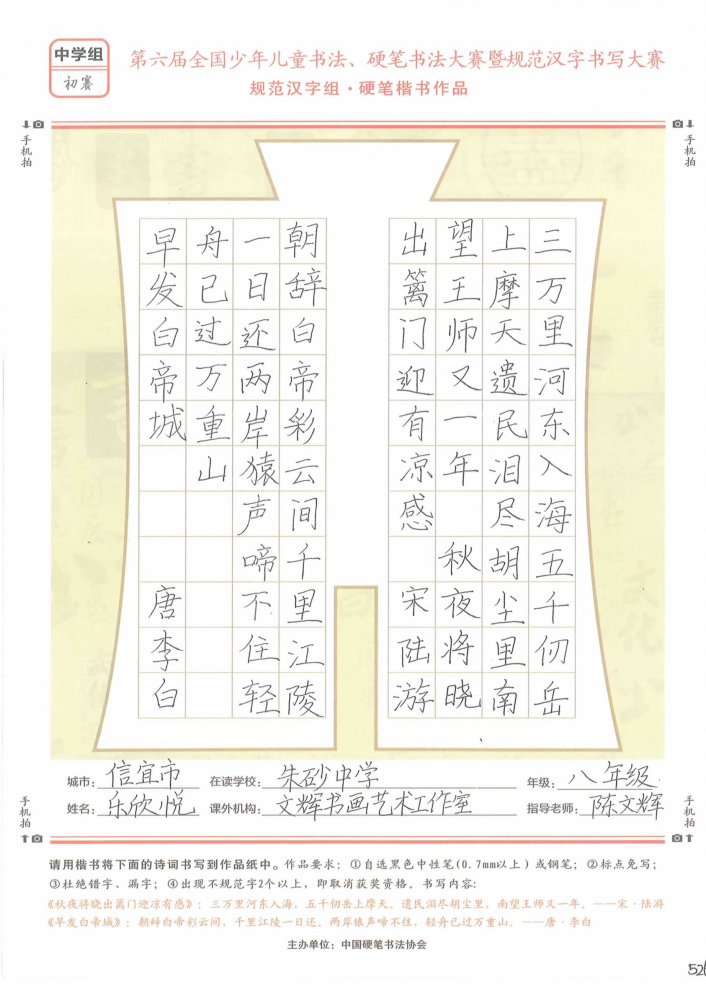 中学组
初赛
第六届全国少年儿童书法、硬笔书法大赛暨规范汉字书写大赛
规范汉字组·硬笔楷书作品
手机拍
手机拍
三万里河东入海五千仞岳
上摩天遗民泪尽胡尘里南
望王师又一年 秋夜将晓
出篱门迎有凉感 宋陆游
朝辞白帝彩云间千里江陵
一日还两岸猿声啼不住轻
舟已过万重山
早发白帝城 唐李白
城市：信宜市 在读学校：朱砂中学 年级：八年级
姓名：乐欣悦 课外机构：文辉书画艺术工作室 指导老师：陈文辉
手机拍
手机拍
请用楷书将下面的诗词书写到作品纸中。作品要求：①自选黑色中性笔(0.7mm以上)或钢笔；②标点免写；
③杜绝错字、漏字；④出现不规范字2个以上，即取消获奖资格。书写内容：
《秋夜将晓出篱门迎凉有感》：三万里河东入海，五千仞岳上摩天。遗民泪尽胡尘里，南望王师又一年。——宋·陆游
《早发白帝城》：朝辞白帝彩云间，千里江陵一日还。两岸猿声啼不住，轻舟已过万重山。——唐·李白
主办单位：中国硬笔书法协会